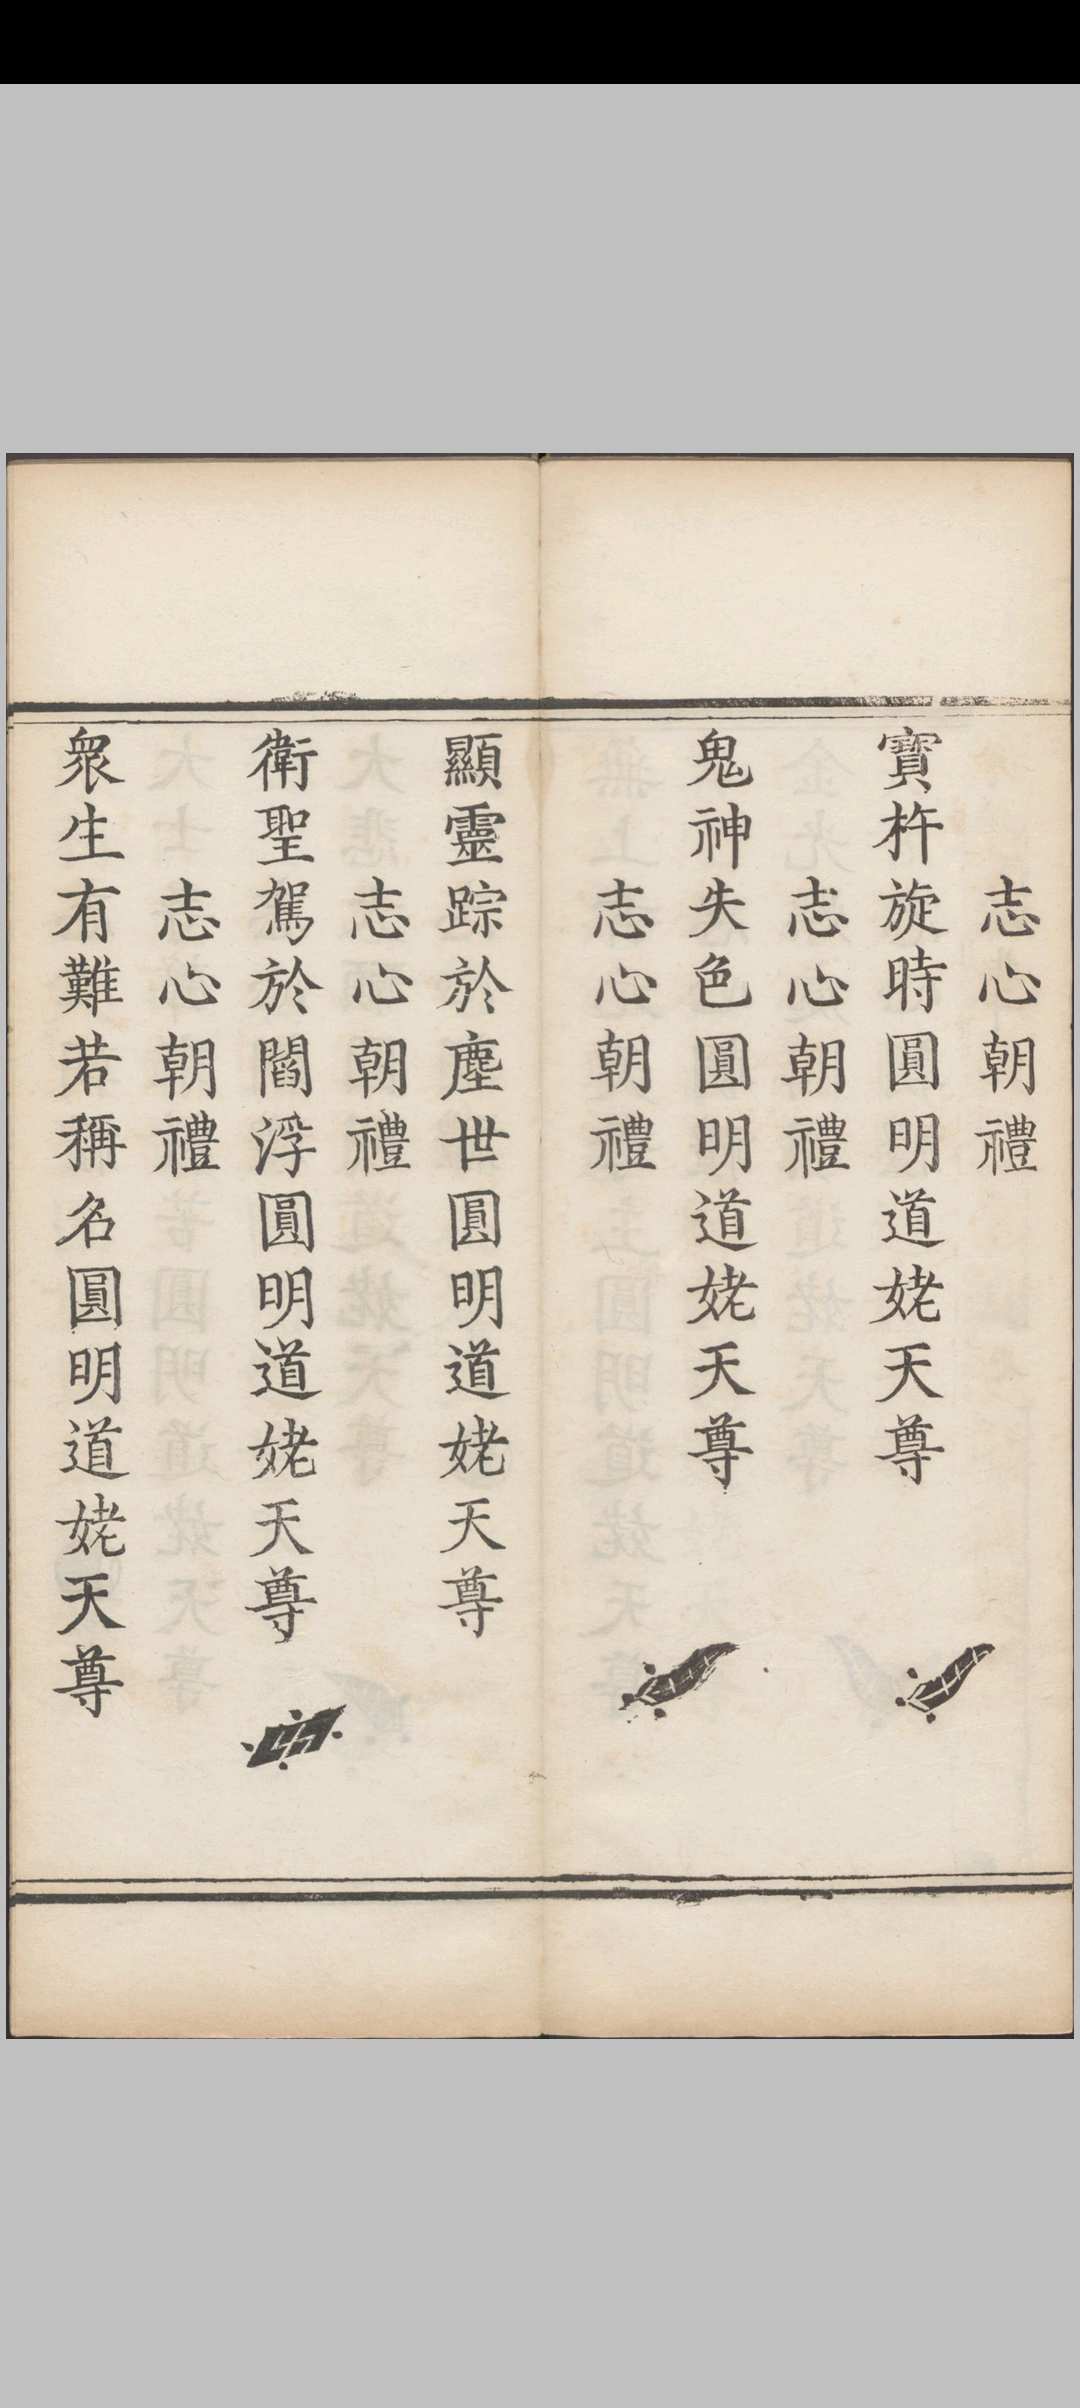 志心朝禮
寶杵旋時圓明道姥天尊
志心朝禮
鬼神失色圓明道姥天尊
志心朝禮
顯靈踪於塵世圓明道姥天尊
志心朝禮
衛聖駕於閻浮圓明道姥天尊
志心朝禮
衆生有難若稱名圓明道姥天尊